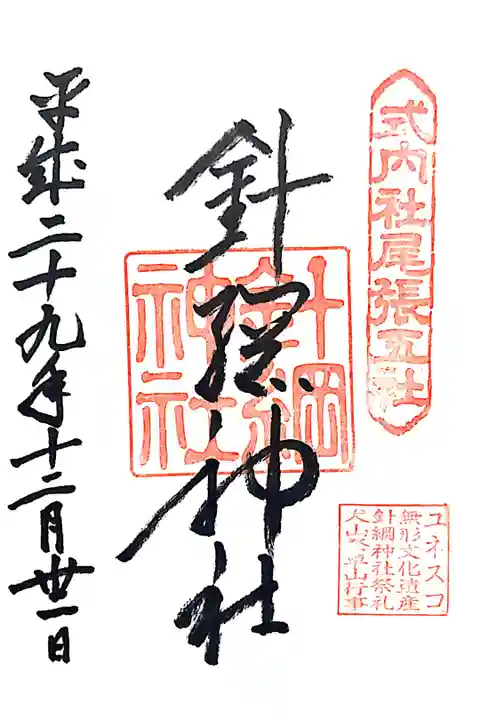 式内社尾張五社
ユネスコ
無形文化遺産
針綱神社祭礼
犬山祭、車山行事
針綱神社
針綱
神社
平成二十九年十二月廿一日